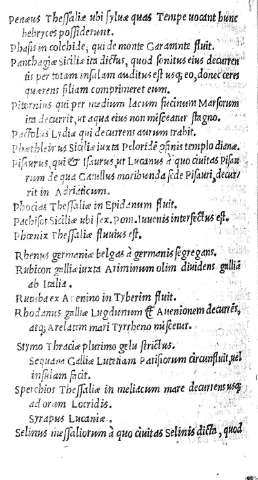 Penæus Thessaliæ ubi syluæ quas Tempe uocant hunc
hebryces possiderunt.
Phasis in colchide, qui de monte Garamnte fluit.
Panthagiæ Siciliæ ita dictus, quod sonitus eius decurren
tis per totam insulam auditus est usq; eo, donec ceres
quærens filiam comprimeret eum.
Pitornius qui per medium lacum fucinum Marsorum
ita decurrit, ut aqua eius non misceatur stagno.
Pactolus Lydiæ qui decurrens aurum trahit.
Phæthlebrus Siciliæ iuxta Peloridē ɔfinis templo dianæ.
Pisaurus, qui & Isaurus, ut Lucanus à quo ciuitas Pisau
rum de qua Catullus moribunda sede Pisauri, decur/
rit in Adriaticum.
Phocias Thessaliæ in Epidanum fluit.
Pachisos Siciliæ ubi sex. Pom. Iuuenis interfectus est.
Phœnix Thessaliæ fluuius est.
Rhenus germaniæ belgas à germanis segregans.
Rubicon galliæ iuxta Ariminum olim diuidens galliā
ab Italia.
Rutuba ex Apenino in Tyberim fluit.
Rhodanus galliæ Lugdunum & Auenionem decurrēs,
atq; Arelatum mari Tyrrheno miscetur.
Strymo Thraciæ plurimo gelu strictus.
Sequana Galliæ Lutetiam Parisiorum circunfluit, uel
insulam facit.
Sperchios Thessaliæ in meliacum mare decurrens usq;
ad oram Locridis.
Syrapus Lucaniæ.
Selinus messaliorum à quo ciuitas Selinis dicta, quod